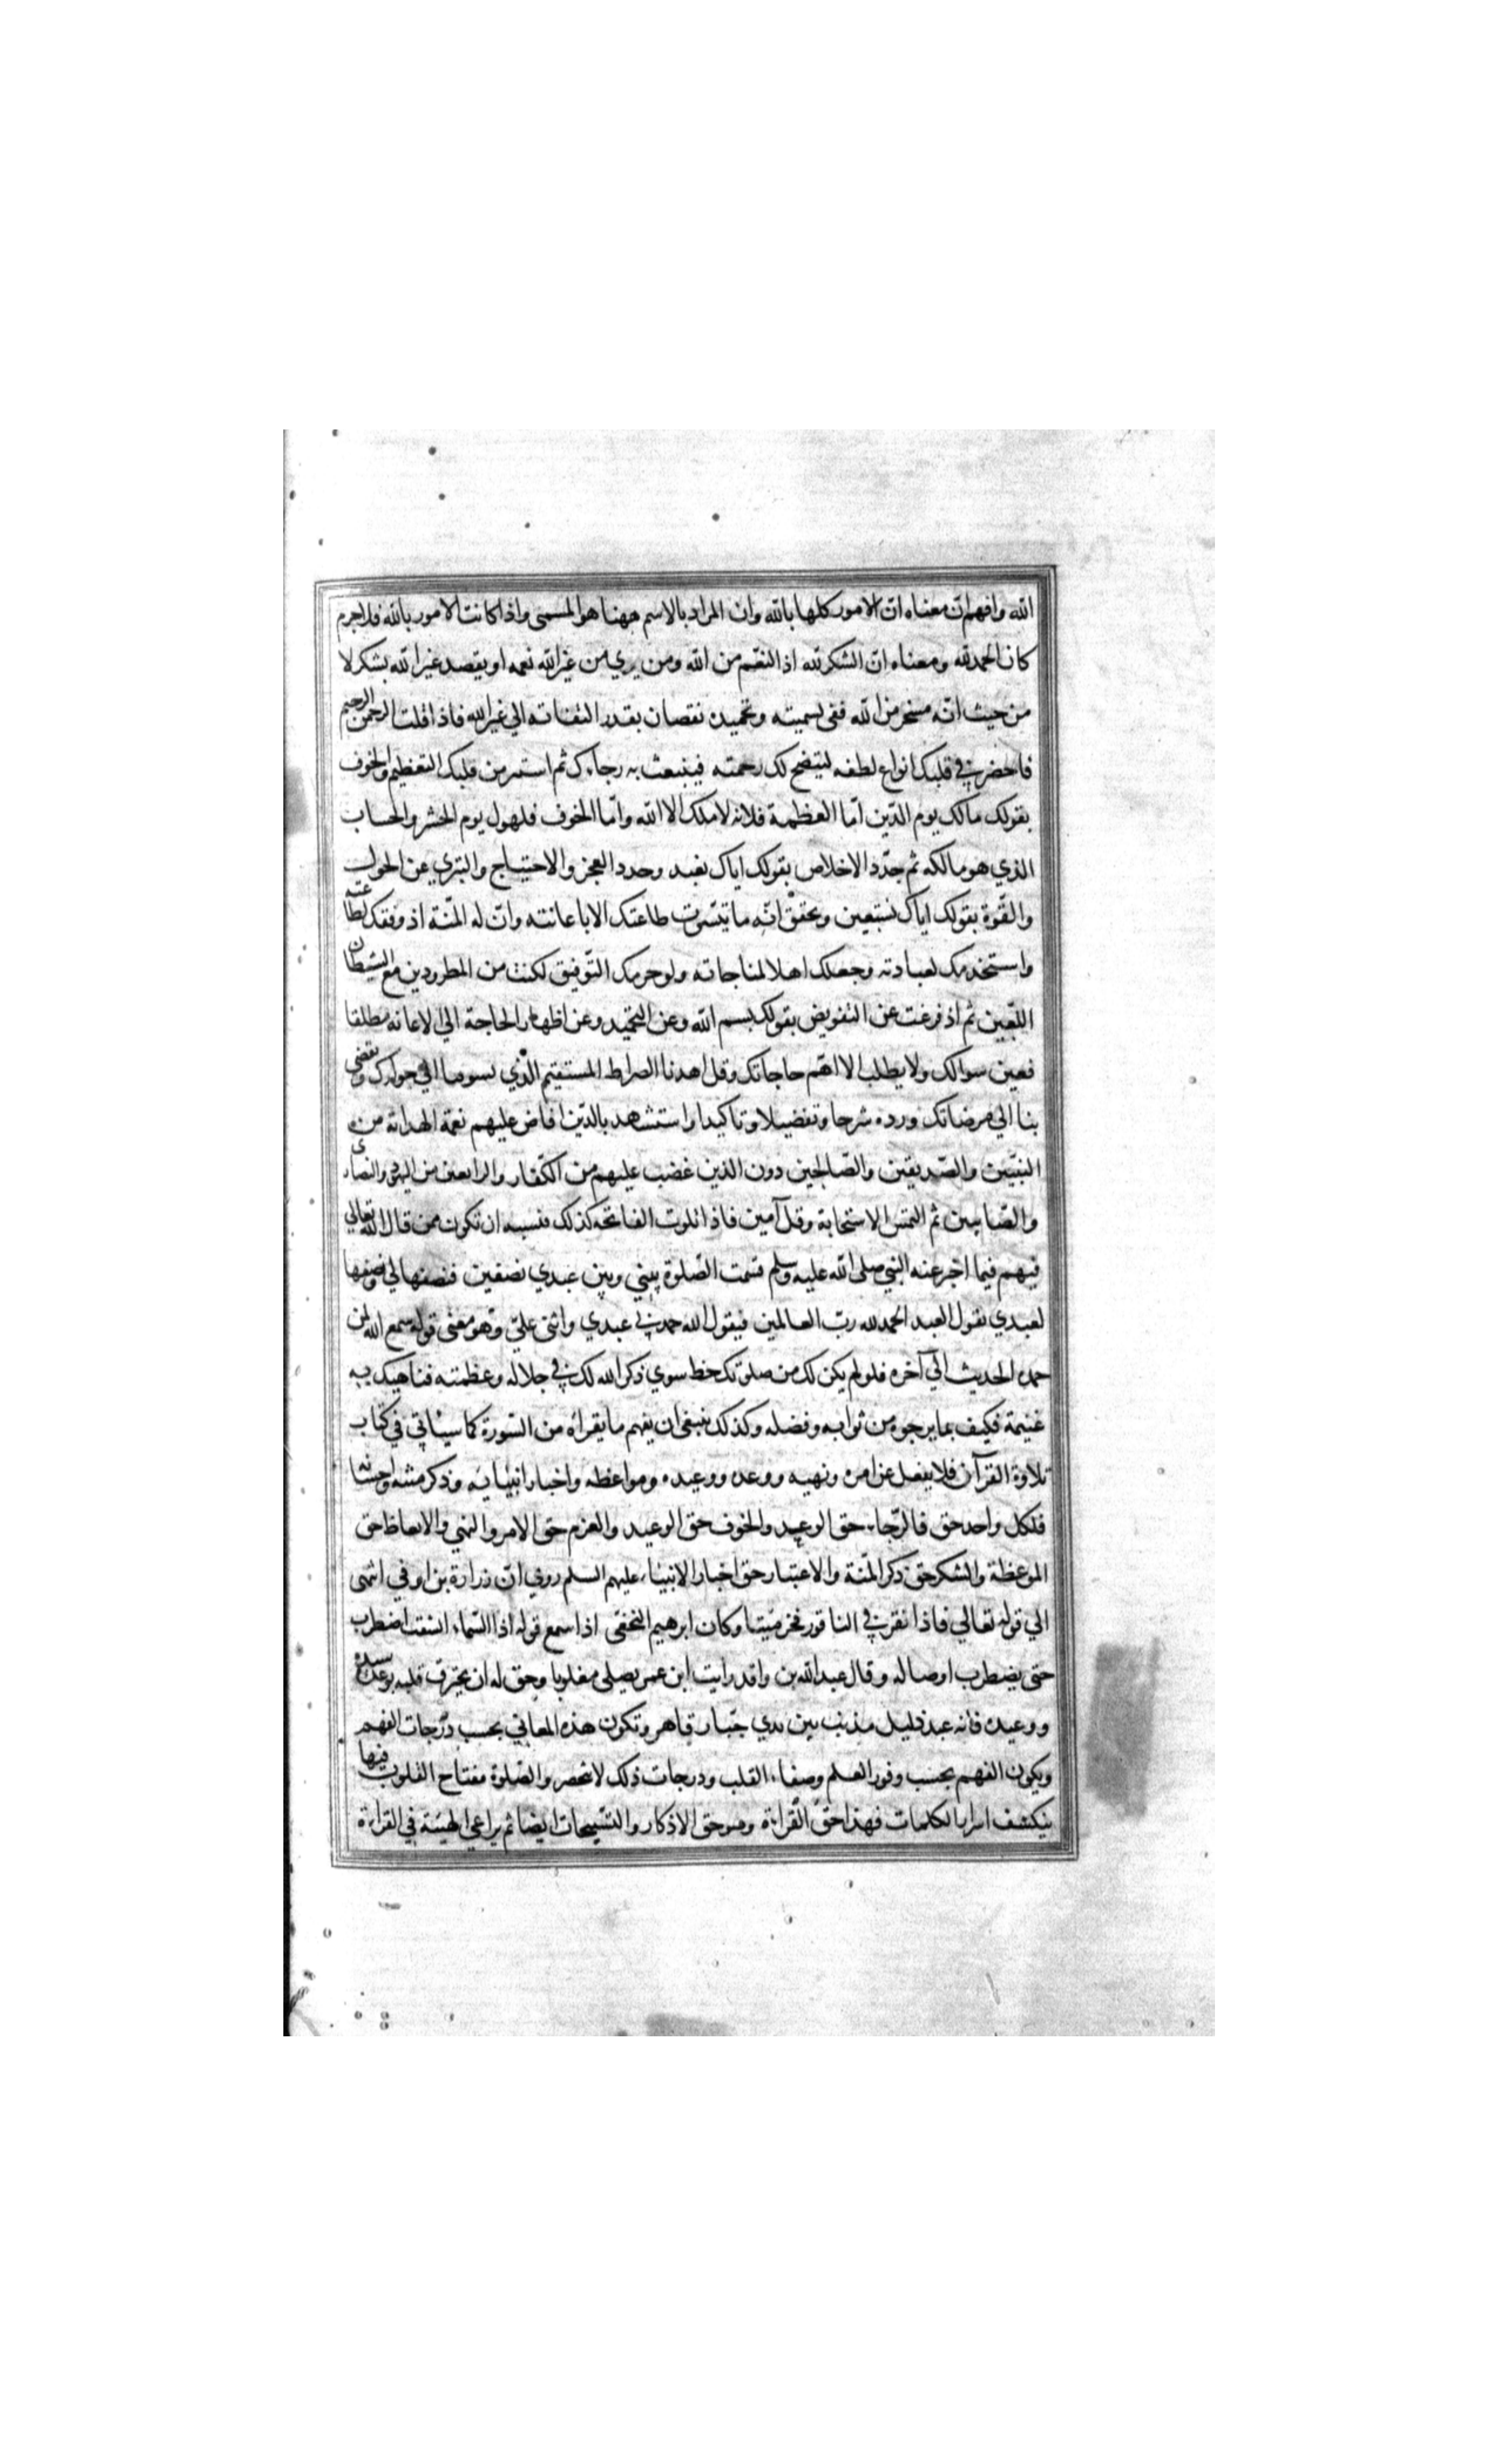 الله وافهم ان معناه ان الامور كلها بالله وان المراد بالاسم ههنا هو المسمى واذا كانت الامور بالله فلا جرم
كان الحمد لله ومعناه ان الشكر لله اذ النعم من الله ومن يري من غير الله نعمه او يقصد غير الله بشكر لا
من حيث انّه مسخر من الله ففي تسميته وتحميده نقصان بقدر التفاته الي غير الله فاذا قلت الرحمن الرحيم
فاحضر في قلبك انواع لطفه ليتضح لك رحمته فينبعث به رجاءك ثم استمر من قلبك التعظيم والخوف
بقولك مالك يوم الدّين امّا العظمة فلانه لا ملك الا الله وامّا الخوف فلهول يوم الحشر والحساب
الذي هو مالكه ثم جدّد الاخلاص بقولك اياك نعبد وجدد العجز والاحتياج والتبري عن الحول
والقّوة بقولك اياك نستعين وتحقق انّه ما تيسّرت طاعتك الا باعانته وانّ له المنّة اذ وفقك لطاعته
واستخدمك لعبادته وجعلك اهلا لمناجاته ولو حرمك التّوفيق لكنت من المطرودين مع الشيطان
اللّعين ثم اذ فرغت عن التفويض بقولك بسم الله وعن التحميد وعن اظهار الحاجة الي الاعانه مطلقا
فعين سوالك ولا يطلب الا اهّم حاجاتك وقل اهدنا الصراط المستقيم الّذي يسوقنا الي جوارك وتفضي
بنا الي مرضاتك ورده شرحا وتفضيلا وتاكيدا واستشهد بالذين افاض عليهم نعمة الهداية من
النبيّين والصّديقين والصّالحين دون الذين غضب عليهم من الكّفار والرايعين من اليهود والنصارى
والصّابيين ثم التمس الاستجابة وقل آمين فاذا تلوت الفاتحه كذلك فنسبه ان تكون ممن قال الله تعالي
فيهم فيما اخبر عنه النبي صلي الله عليه وسلم قسمت الصّلوة بيني وبين عبدي نصفين فنصفها لي ونصفها
لعبدي يقول العبد الحمد لله ربّ العالمين فيقول الله حمدني عبدي واثني عليّ وهو معني قوله سمع الله لمن
حمده الحديث الي آخره فلو لم يكن لك من صلوتك حظ سوي ذكر الله لك في جلاله وعظمته فناهيك به
غنيمة فكيف بما يرجوه من ثوابه وفضله وكذلك ينبغي ان يفهم ما يقراه من السّورة كما سياتي في كتاب
تلاوة القرآن فلا يغفل عن امره ونهيه ووعده ووعيده ومواعظه واخبار انبيائه وذكر مننه واحسانه
فلكل واحد حق فالرّجاء حق الوعد والخوف حق الوعيد والعزم حق الامر والنهي والاتعاظ حق
الموعظة والشكر حق ذكر المّنة والاعتبار حق اخبار الانبياء عليهم السلم روي انّ زرارة بن اوفي انتهى
الي قوله تعالي فاذا نقر في الناقور فخر ميّتا وكان ابرهيم النخعي اذا سمع قوله اذا السّماء انشقت اضطرب
حتى يضطرب اوصاله وقال عبد الله بن واقد رايت ابن عمر يصلي مغلوبا وحق له ان يحترق قلبه بوعد سيده
ووعيده فانه عبد ذليل مذنب بين يدي جبّار قاهر وتكون هذه المعاني بحسب درّجات الفهم
ويكون الفهم بحسب وفور العلم وصفاء القلب ودرجات ذلك لا تنحصر والصّلوة مفتاح القلوب فيها
ينكشف اسرار الكلمات فهذا حقّ القّراءة وهو حق الاذكار والتسّبيحات ايضا ثم يراعي الهيئة في القراءة